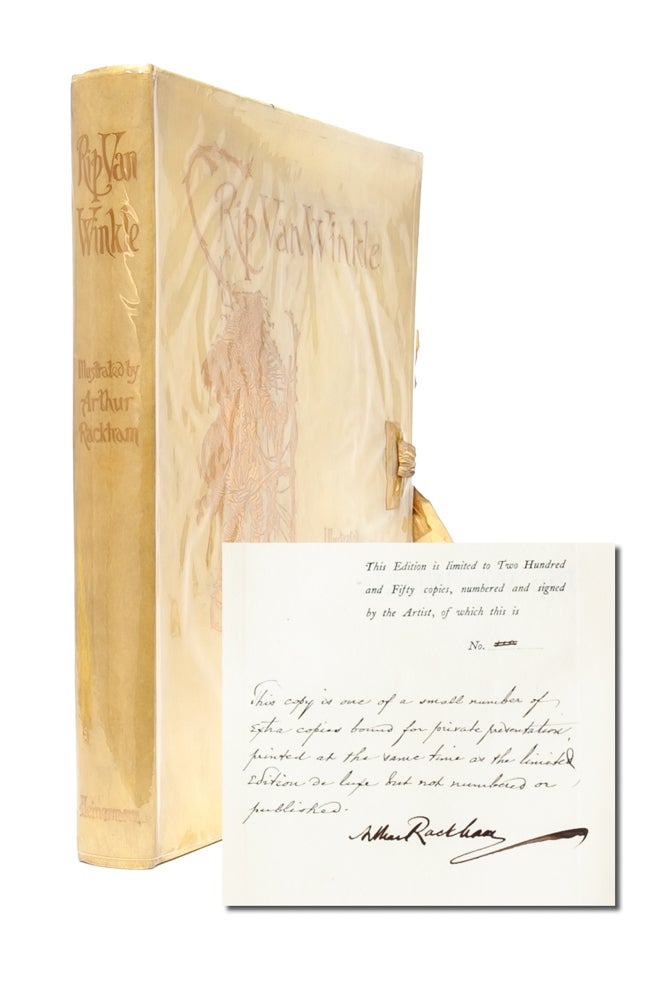 Rip Van
Winkle
Illustrated by
Arthur
Rackham
Heinemann
Rip Van Winkle
Illustrated
This Edition is limited to Two Hundred
and Fifty copies, numbered and signed
by the Artist, of which this is
No.
This copy is one of a small number of
Extra copies bound for private presentation,
printed at the same time as the limited
Edition de luxe but not numbered or
published.
Arthur Rackham